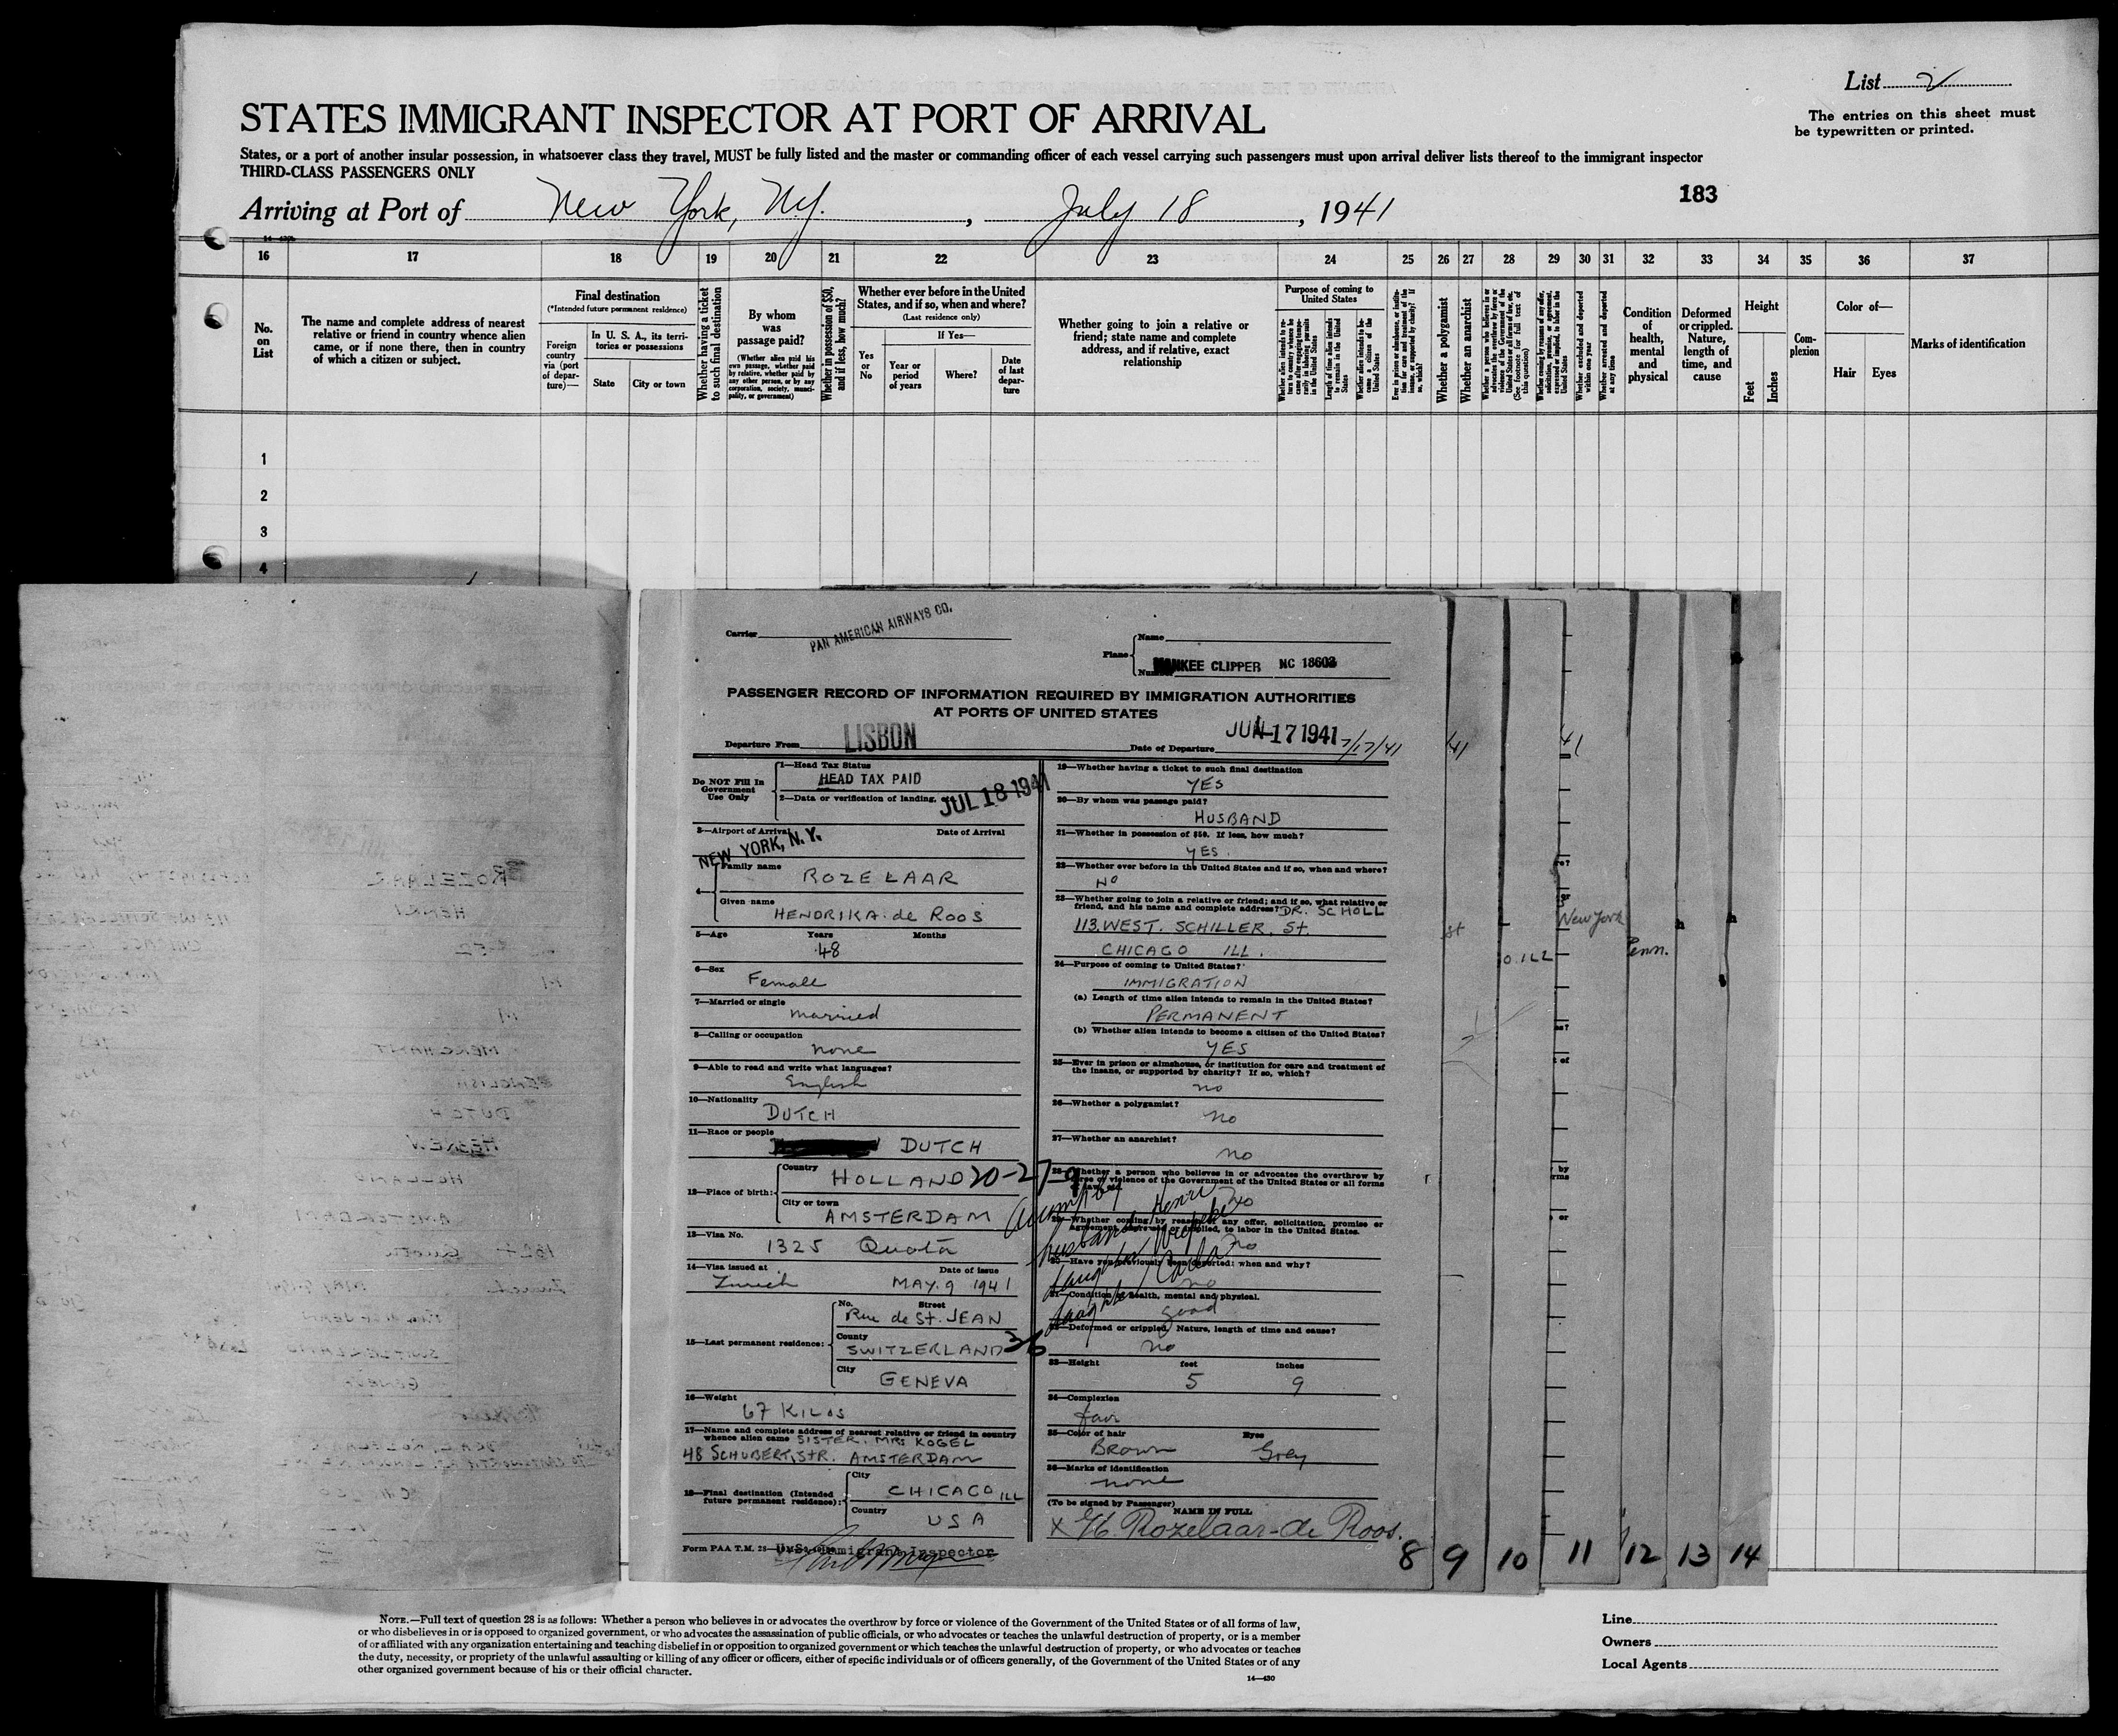 List 2
STATES IMMIGRANT INSPECTOR AT PORT OF ARRIVAL
The entries on this sheet must
be typewritten or printed.
States, or a port of another insular possession, in whatsoever class they travel, MUST be fully listed and the master or commanding officer of each vessel carrying such passengers must upon arrival deliver lists thereof to the immigrant inspector
THIRD-CLASS PASSENGERS ONLY
183
Arriving at Port of New York, N.Y., July 18, 1941
16 17 18 19 20 21 22 23 24 25 26 27 28 29 30 31 32 33 34 35 36 37
No.
on
List
The name and complete address of nearest
relative or friend in country whence alien
came, or if none there, then in country
of which a citizen or subject.
Final destination
(*Intended future permanent residence)
Foreign
country
via (port
of depar-
ture)—
In U. S. A., its terri-
tories or possessions
State
City or town
Whether having a ticket
to such final destination
By whom
was
passage paid?
(Whether alien paid his
own passage, whether paid
by relative, whether paid by
any other person, or by any
corporation, society, munici-
pality, or government)
Whether in possession of $50,
and if less, how much?
Whether ever before in the United
States, and if so, when and where?
(Last residence only)
Yes
or
No
If Yes—
Year or
period
of years
Where?
Date
of last
depar-
ture
Whether going to join a relative or
friend; state name and complete
address, and if relative, exact
relationship
Purpose of coming to
United States
Length of time alien intends
to remain in the United
States
Whether alien intends to be-
come a citizen of the
United States
Whether a polygamist
Whether an anarchist
(See footnote for full text of
this question)
Whether excluded and deported
within one year
Whether arrested and deported
at any time
Condition
of
health,
mental
and
physical
Deformed
or crippled.
Nature,
length of
time, and
cause
Height
Feet
Inches
Com-
plexion
Color of—
Hair
Eyes
Marks of identification
1
2
3
4
Carrier PAN AMERICAN AIRWAYS CO.
Plane
Name
Number YANKEE CLIPPER NC 18603
PASSENGER RECORD OF INFORMATION REQUIRED BY IMMIGRATION AUTHORITIES
AT PORTS OF UNITED STATES
Departure From LISBON
Date of Departure JUN 17 1941 7/17/41
Do NOT Fill In
Government
Use Only
1—Head Tax Status
HEAD TAX PAID
2—Data or verification of landing.
JUL 18 1941
3—Airport of Arrival
Date of Arrival
NEW YORK, N. Y.
4—
Family name
ROZELAAR
Given name
HENDRIKA de Roos
5—Age Years Months
48
6—Sex
Female
7—Married or single
married
8—Calling or occupation
none
9—Able to read and write what languages?
English
10—Nationality
DUTCH
11—Race or people
DUTCH
12—Place of birth:
Country
HOLLAND 20-27-9
City or town
AMSTERDAM
13—Visa No.
1325 Quota
14—Visa issued at
Date of issue
Zurich MAY. 9 1941
15—Last permanent residence:
No. Street
Rue de St. JEAN
County
SWITZERLAND 36
City
GENEVA
16—Weight
67 KILOS
17—Name and complete address of nearest relative or friend in country
whence alien came SISTER. MRS KOGEL
48 SCHUBERT, STR. AMSTERDAM
18—Final destination (Intended
future permanent residence):
City
CHICAGO ILL
Country
USA
Form PAA T.M. 28—
U.S. Immigrant Inspector
19—Whether having a ticket to such final destination
YES
20—By whom was passage paid?
HUSBAND
21—Whether in possession of $50. If less, how much?
YES.
22—Whether ever before in the United States and if so, when and where?
NO
23—Whether going to join a relative or friend; and if so, what relative or
friend, and his name and complete address? DR. SCHOLL
113. WEST. SCHILLER. St.
CHICAGO ILL.
24—Purpose of coming to United States?
IMMIGRATION
(a) Length of time alien intends to remain in the United States?
PERMANENT
(b) Whether alien intends to become a citizen of the United States?
YES
25—Ever in prison or almshouse, or institution for care and treatment of
the insane, or supported by charity? If so, which?
no
26—Whether a polygamist?
no
27—Whether an anarchist?
no
28—Whether a person who believes in or advocates the overthrow by
force or violence of the Government of the United States or all forms
of law, etc.
no
29—Whether coming by reason of any offer, solicitation, promise or
agreement, expressed or implied, to labor in the United States.
no
30—Have you previously been deported: when and why?
no
husband Henri
daughter
daughter Carla
31—Condition of health, mental and physical.
good
32—Deformed or crippled, Nature, length of time and cause?
no
33—Height feet inches
5 9
34—Complexion
fair
35—Color of hair Eyes
Brown Grey
36—Marks of identification
none
(To be signed by Passenger)
NAME IN FULL
x H. Rozelaar-de Roos.
8 9 10 11 12 13 14
41
st
O. ILL
41
New York
Penn.
NOTE.—Full text of question 28 is as follows: Whether a person who believes in or advocates the overthrow by force or violence of the Government of the United States or of all forms of law,
or who disbelieves in or is opposed to organized government, or who advocates the assassination of public officials, or who advocates or teaches the unlawful destruction of property, or is a member
of or affiliated with any organization entertaining and teaching disbelief in or opposition to organized government or which teaches the unlawful destruction of property, or who advocates or teaches
the duty, necessity, or propriety of the unlawful assaulting or killing of any officer or officers, either of specific individuals or of officers generally, of the Government of the United States or of any
other organized government because of his or their official character.
14—430
Line
Owners
Local Agents